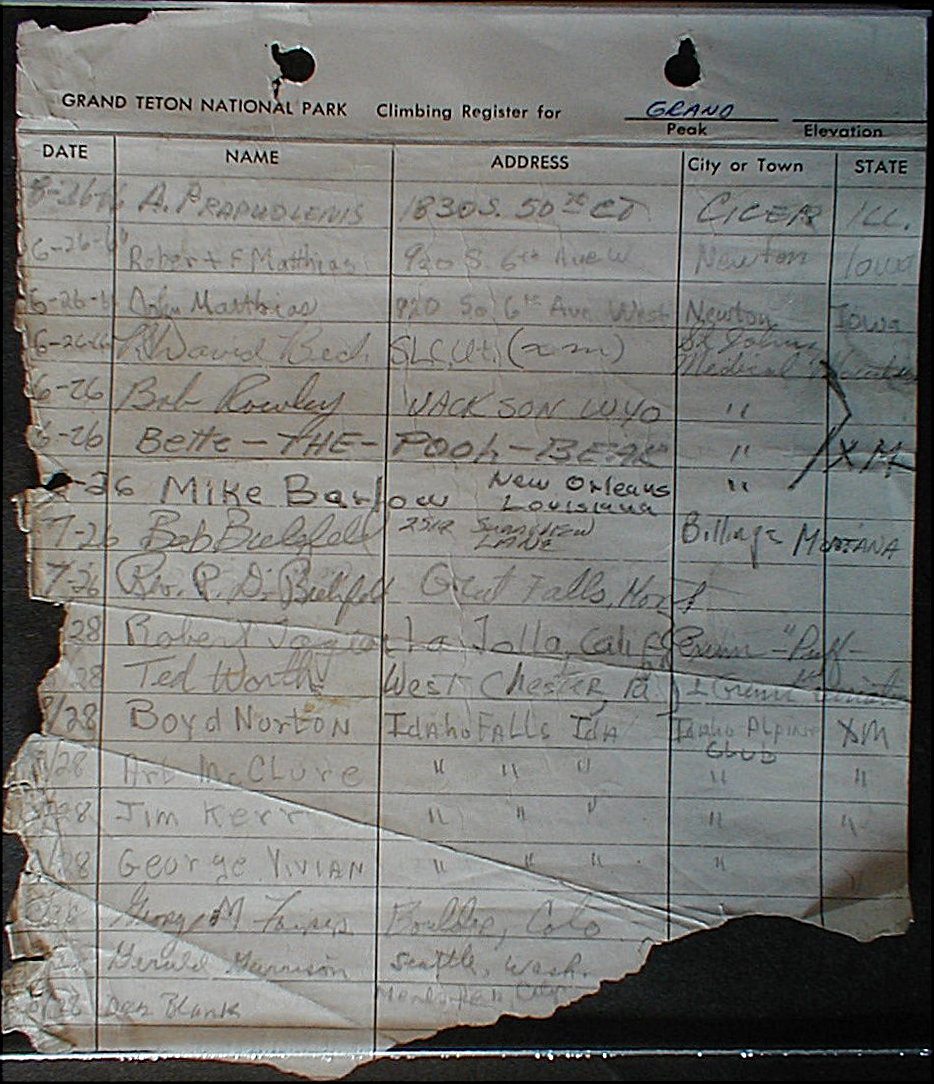 GRAND TETON NATIONAL PARK Climbing Register for GRAND
Peak Elevation
DATE NAME ADDRESS City or Town STATE
A. PRAPUOLENIS 1830 S. 50 CT CICER ILL.
Robert F Matthias 920 S. 6th Ave W Newton Iowa
6-26-6 John Matthias 920 So 6th Ave West Newton Iowa
6-26-6 David SLC Ut. (xm) St Johns
Medical
6-26 Bob Rowley JACKSON WYO "
6-26 Bette-THE-POOh-BEAR " XM
-26 Mike Barlow New Orleans Louisiana "
7-26 Bob Bielefeld LANE Billings MONTANA
7-26 Rev. P. D. Bielefeld Great Falls, Mont
/28 Robert La Jolla, Calif
/28 Ted Worth West Chester, Pa
/28 Boyd NORTON IdahoFALLS Ida Idaho Alpine Club XM
/28 Art McCLure " " " " "
/28 Jim Kerr " " " " "
/28 George VIVIAN " " " " "
George M Boulder, Colo
Gerald Garrison Seattle, Wash.
/28 Dan Blank